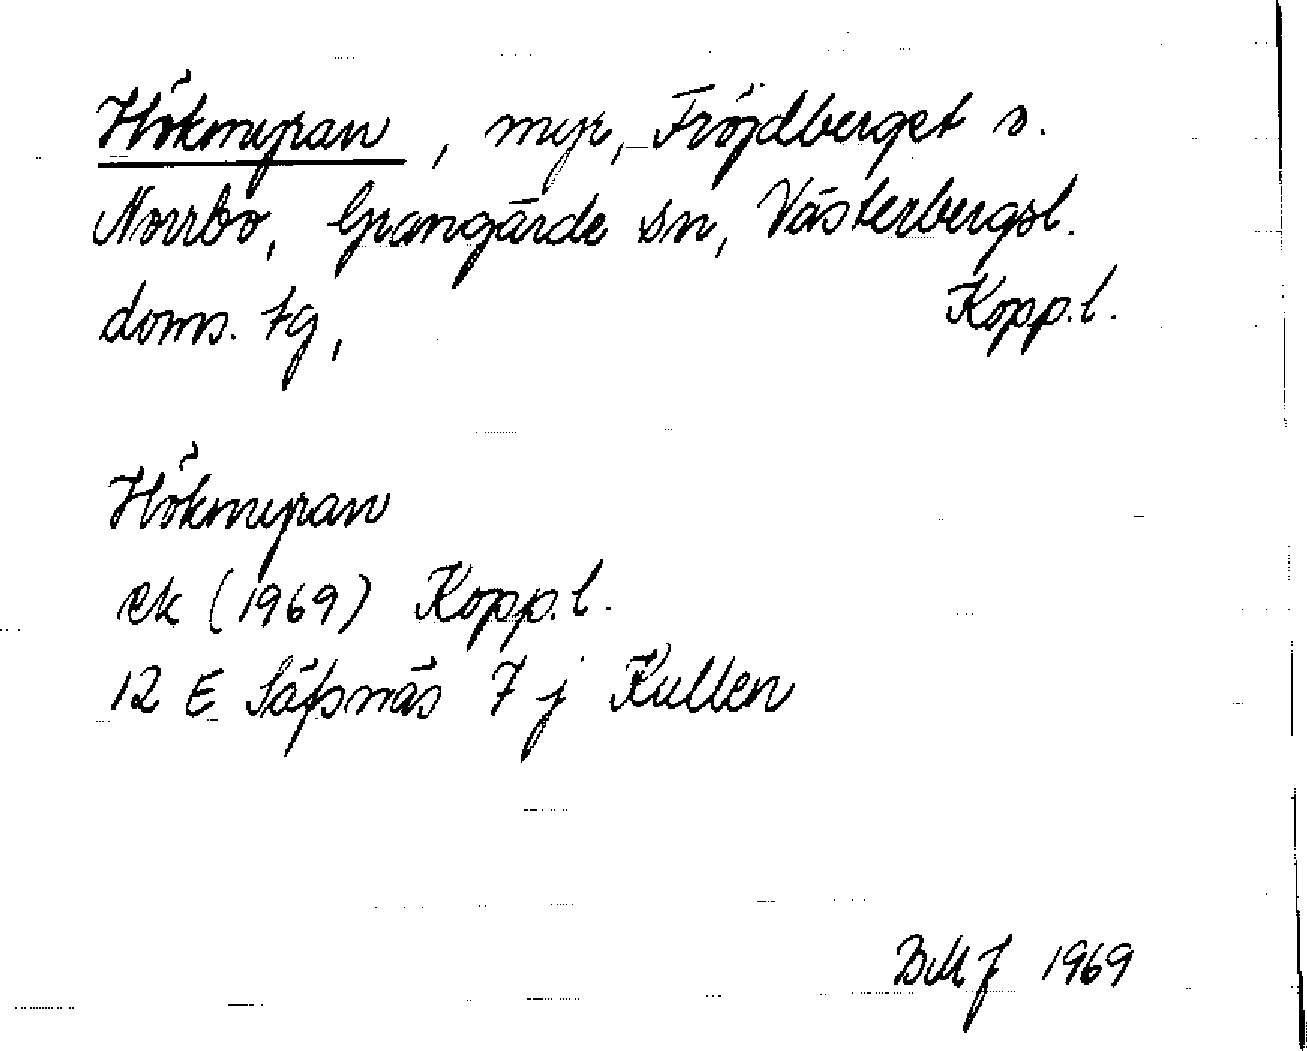 Hökmyran, myr, Fröjdberget s.
Norrbo, Grangärde sn, Västerbergsl.
doms. tg, Kopp.l.
Hökmyran
ek (1969) Kopp.l.
12 E Säfsnäs 7 j Kullen
BMJ 1969